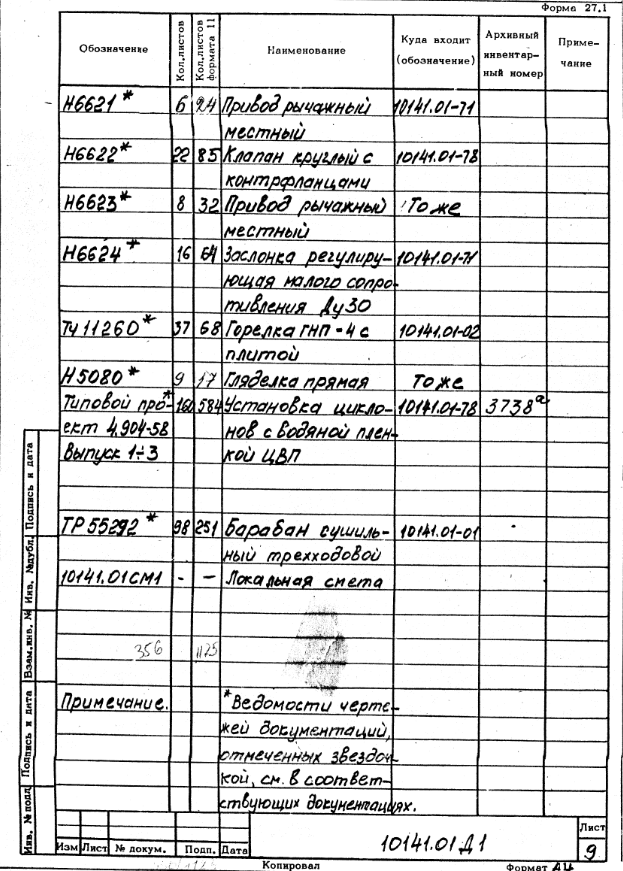 Форма 27.1
Обозначение Кол.листов Кол.листов формата 11 Наименование Куда входит (обозначение) Архивный инвентар-ный номер Приме-чание
Н6621* 6 24 Привод рычажный 10141.01-71
местный
Н6622* 22 85 Клапан круглый с 10141.01-78
контрфланцами
Н6623* 8 32 Привод рычажный То же
местный
Н6624* 16 64 Заслонка регулиру- 10141.01-71
ющая малого сопро-
тивления Ду30
ТЧ11260* 37 68 Горелка ГНП-4 с 10141.01-02
плитой
Н5080* 9 17 Гляделка прямая То же
Типовой про-* 160 584 Установка цикло- 10141.01-78 3738а
ект 4.904-58 нов с водяной плен-
Выпуск 1÷3 кой ЦВП
ТР55292* 98 251 Барабан сушиль- 10141.01-01
ный трехходовой
10141.01СМ1 - - Локальная смета
356 1125
Примечание. *Ведомости черте-
жей документаций,
отмеченных звездоч-
кой, см. в соответ-
ствующих документациях.
Инв. № подл Подпись и дата Взам.инв. № Инв. №дубл. Подпись и дата
Изм Лист № докум. Подп. Дата
10141.01Д1
Лист
9
Копировал
Формат А4